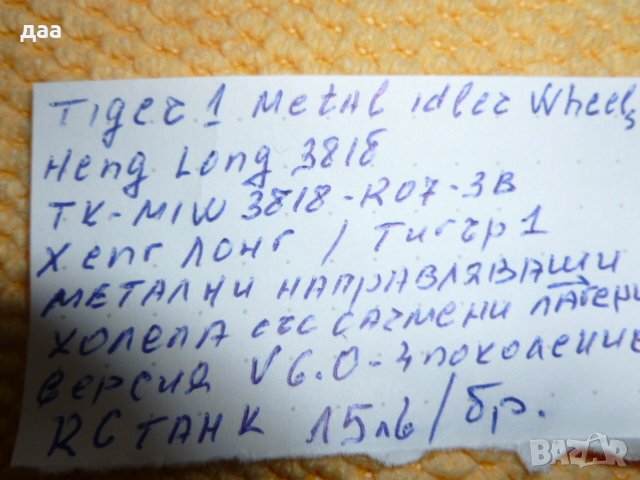 даа
Tiger 1 Metal idler Wheels
Heng Long 3818
TK-MIW 3818-R07-3B
Хенг Лонг / Тигър 1
МЕТАЛНИ НАПРАВЛЯВАЩИ
ХОЛЕЛА със САЧМЕНИ ЛАГЕРИ
версия V 6.0 - 4 поколение
RC ТАНК 15лв/бр.
BAZAR